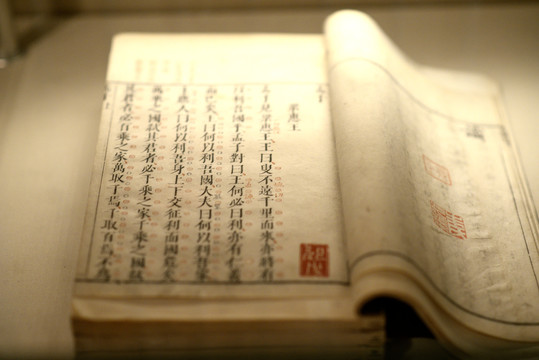 孟子
梁惠王
孟子見梁惠王王曰叟不遠千里而來亦將有
以利吾國乎孟子對曰王何必曰利亦有仁義
而已矣王曰何以利吾國大夫曰何以利吾家
士庶人曰何以利吾身上下交征利而國危矣
萬乘之國弒其君者必千乘之家千乘之國弒
其君者必百乘之家萬取千焉千取百焉